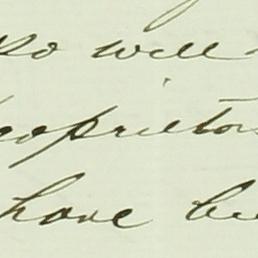 so will
proprietors
have be